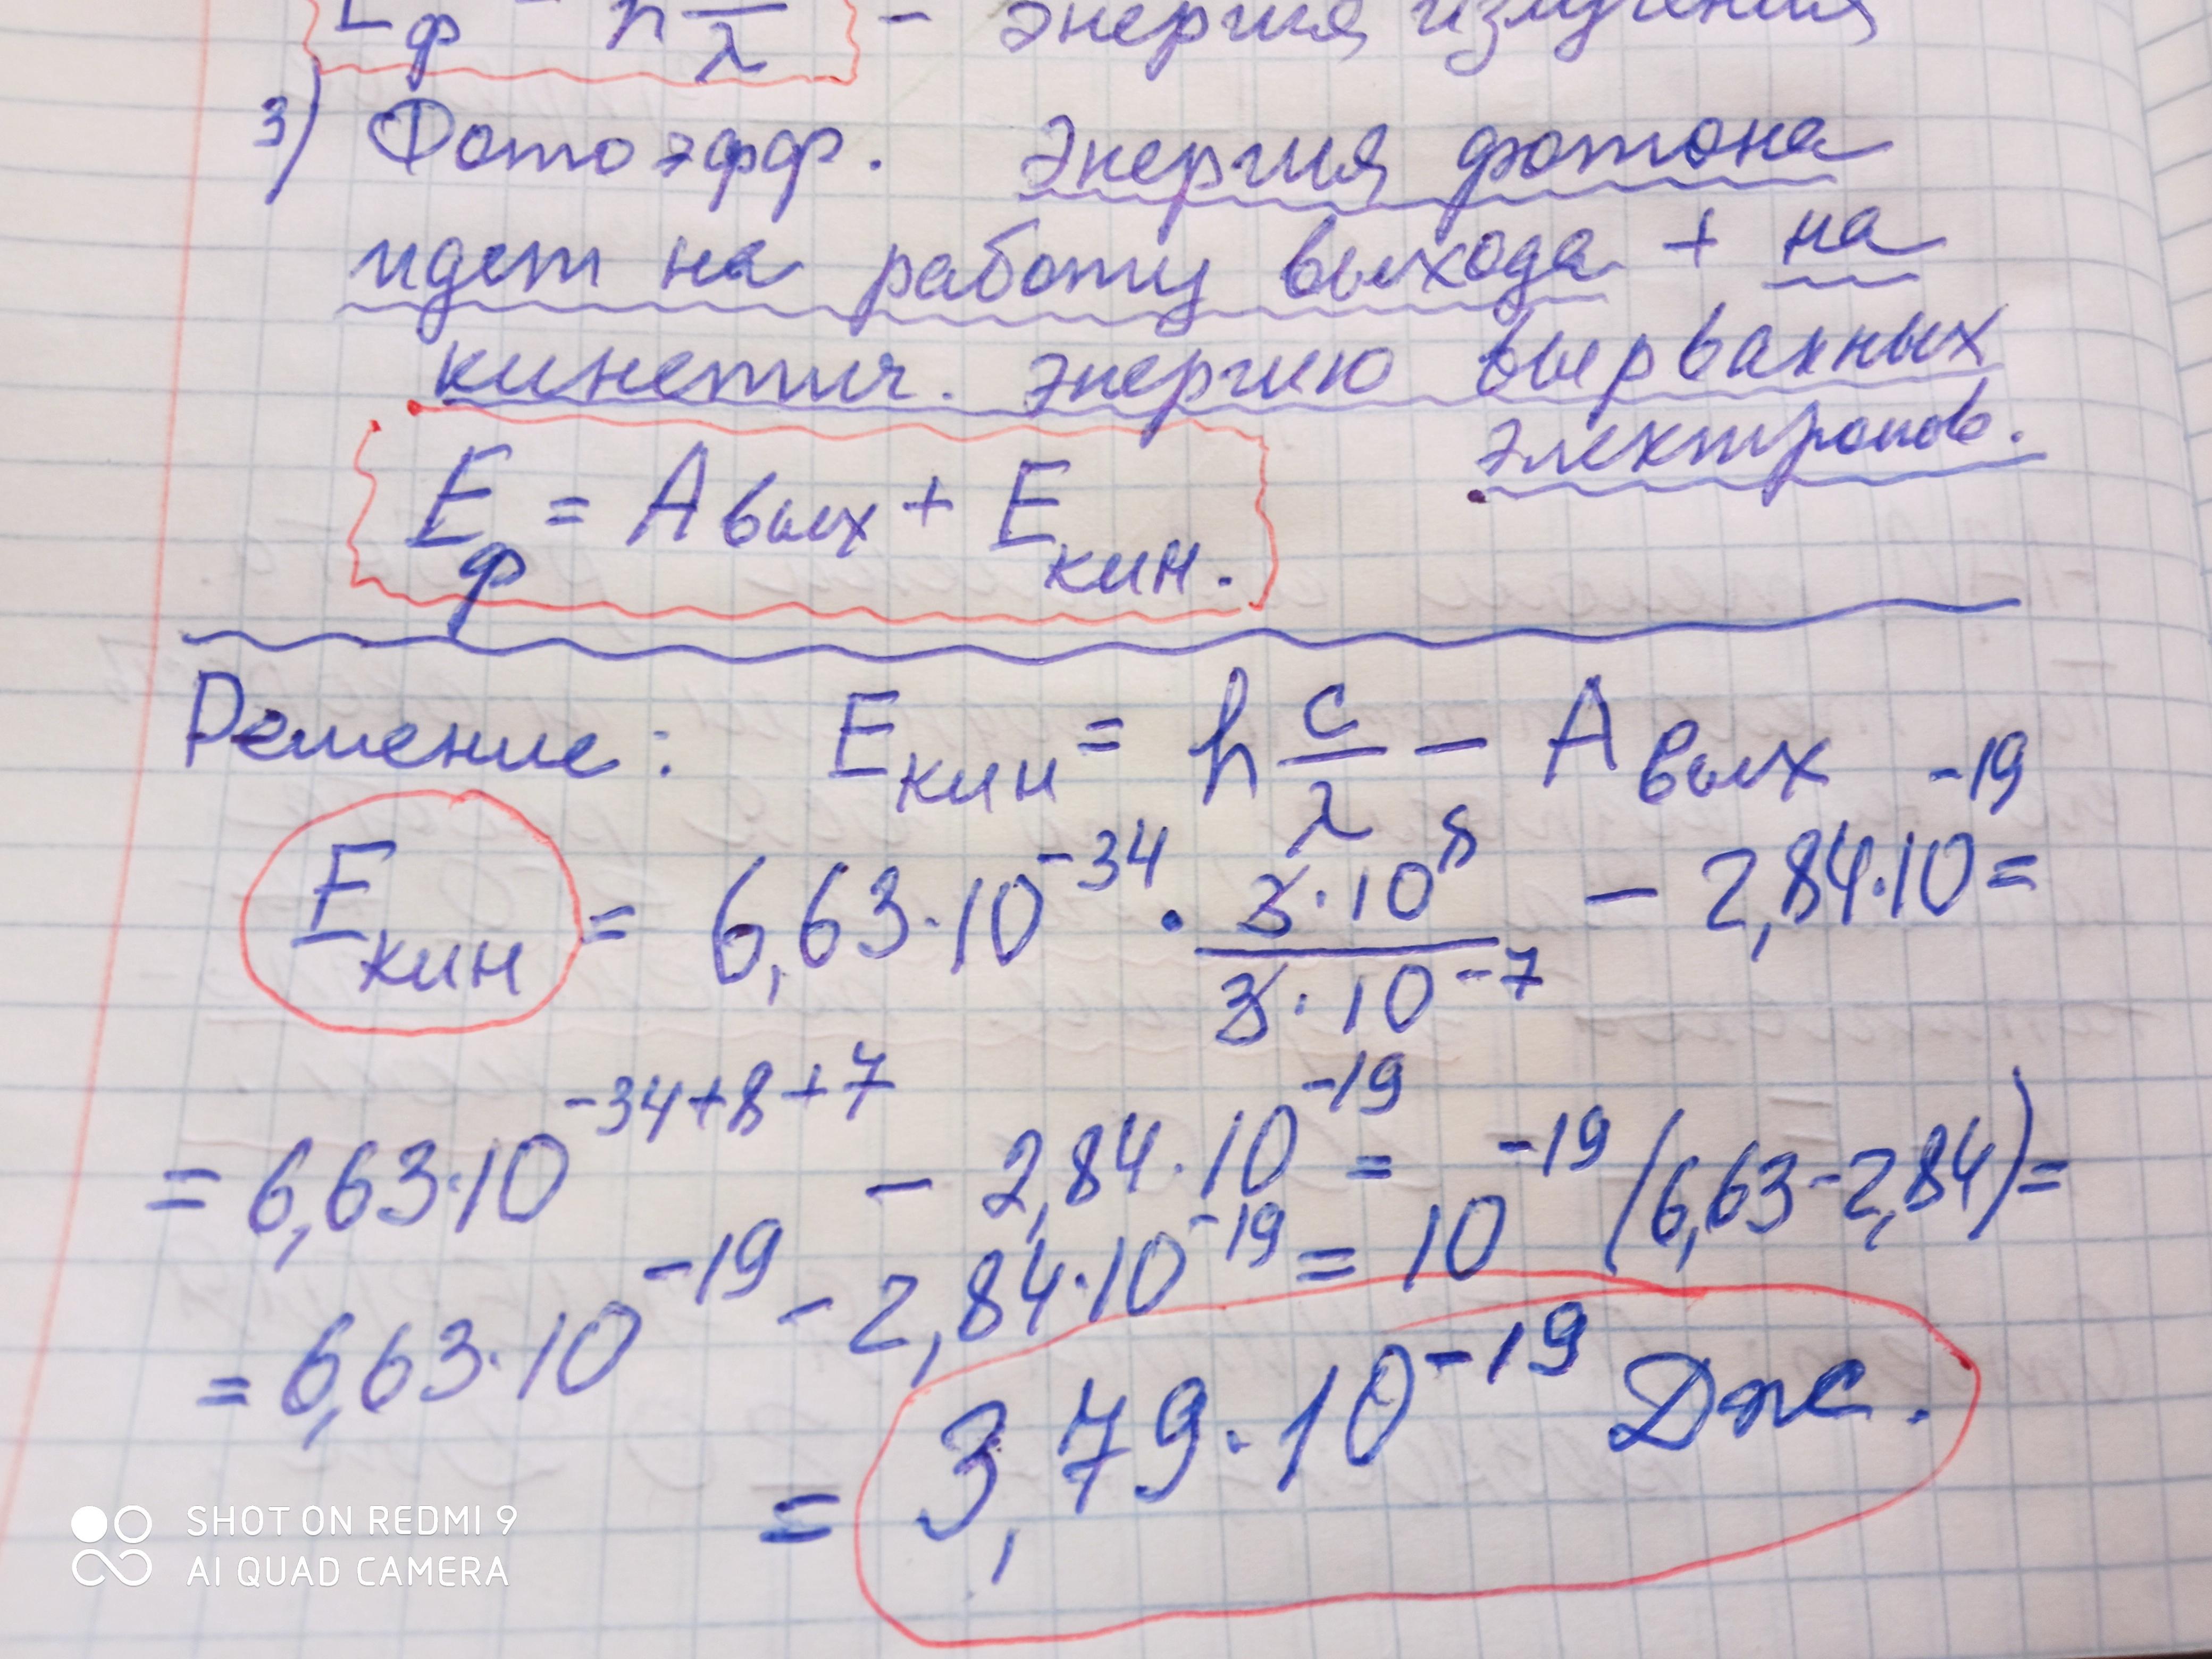 Eф = h c/λ - энергия излучения
3) Фотоэфф. Энергия фотона
идет на работу выхода + на
кинетич. энергию вырванных
электронов.
Eф = Aвых + Eкин.
Решение: Eкин = h c/λ - Aвых
Eкин = 6,63·10^-34 · 3·10^8/3·10^-7 - 2,84·10^-19 =
= 6,63·10^-34+8+7 - 2,84·10^-19 = 10^-19 (6,63-2,84)=
= 6,63·10^-19 - 2,84·10^-19 =
= 3,79·10^-19 Дж.
SHOT ON REDMI 9
AI QUAD CAMERA